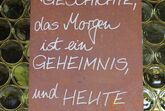 GESCHICHTE,
das Morgen
ist ein
GEHEIMNIS,
und HEUTE